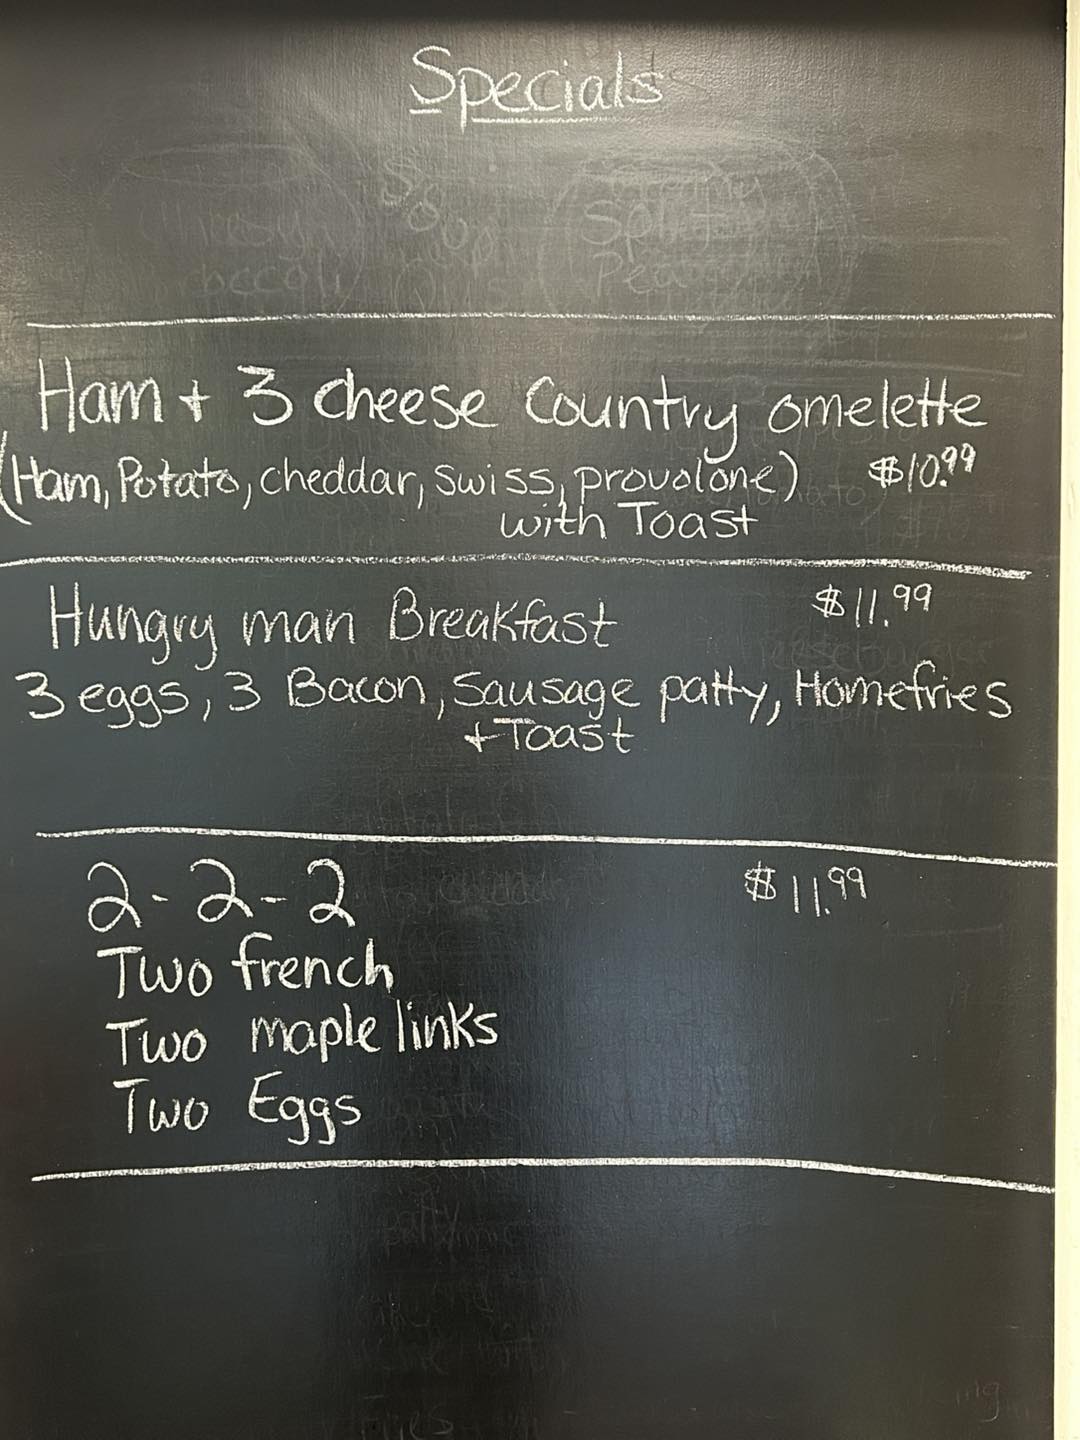 Specials
Soup
Split
Pea
Ham + 3 cheese Country omelette
(Ham, Potato, cheddar, swiss, provolone) $10.99
with Toast
Hungry man Breakfast $11.99
3 eggs, 3 Bacon, Sausage patty, Homefries
+Toast
2-2-2 $11.99
Two french
Two maple links
Two Eggs